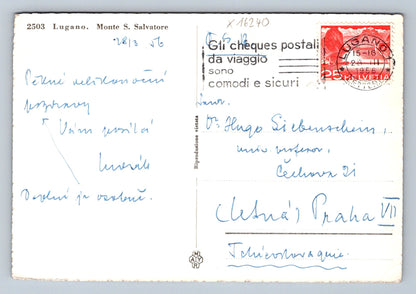 2503 Lugano. Monte S. Salvatore
X 16240
28/3 56
Pěkné velikonoční
pozdravy
Vám posílá
Dovolení je osobně.
Gli cheques postali
da viaggio
sono
comodi e sicuri
LUGANO 1
15-16
28 III
1956
25
HELVETIA
Riproduzione vietata
Dr Hugo Siebenschein,
univ. profesor,
Čechova 21
(Letná) Praha VII
Tchécoslovaquie